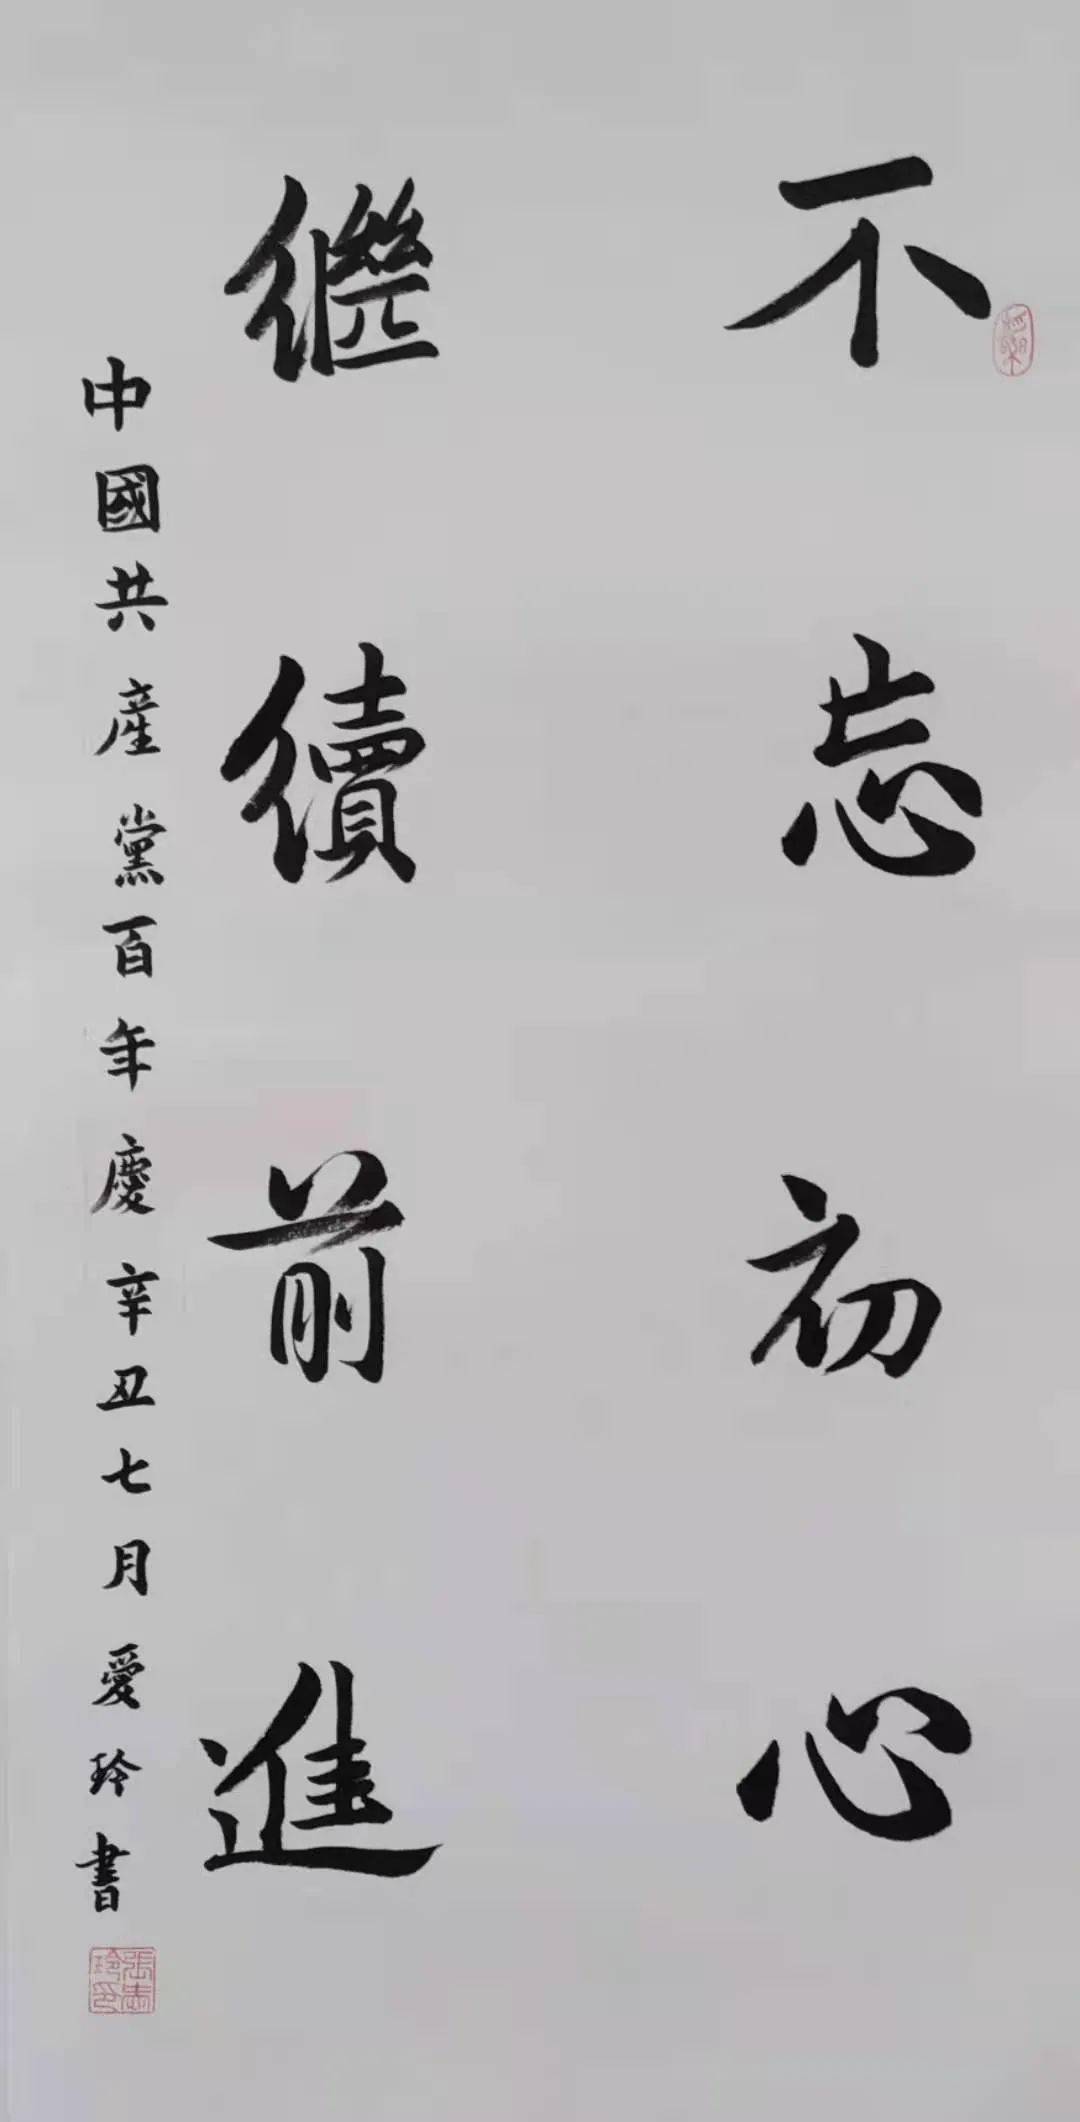 不忘初心
繼續前進
中國共産黨百年慶辛丑七月愛玲書